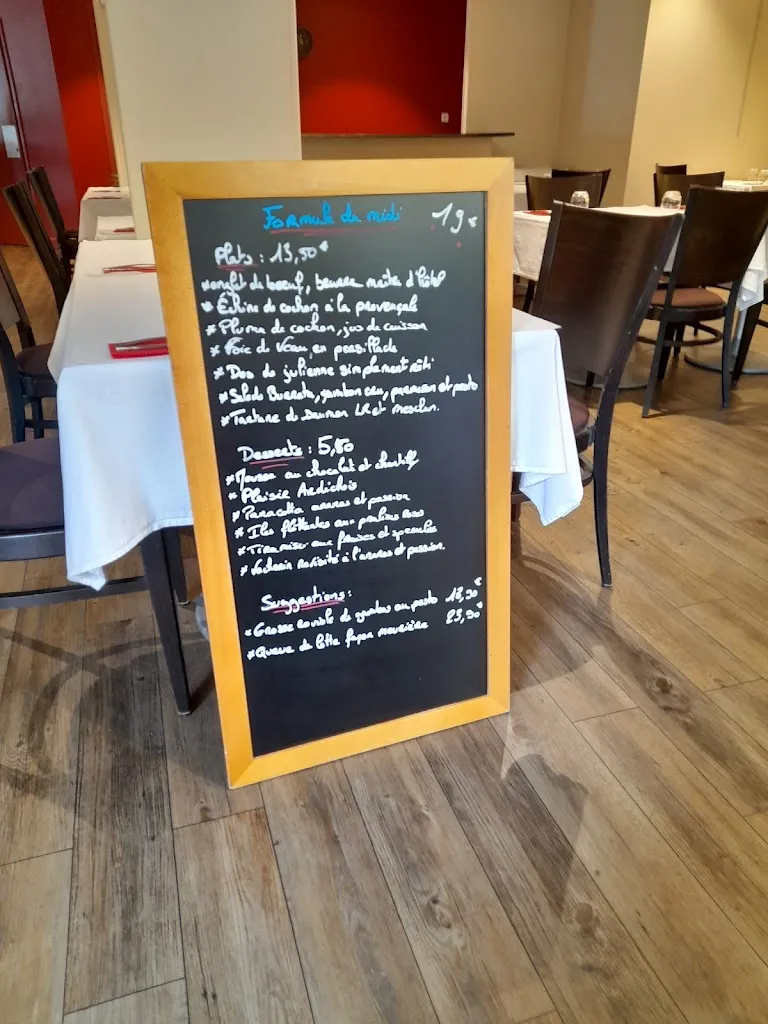 Formule du midi 19€
Plats : 13,50€
*onglet de boeuf, beurre maître d'hôtel
* Échine de cochon à la provençale
* Pluma de cochon, jus de cuisson
* Foie de Veau, en persillade
* Dos de julienne simplement rôti
* Salade Burrata, jambon cru, parmesan et pesto
* Tartare de Saumon LR et mesclun.
Desserts : 5,80
* Mousse au chocolat et chantilly
* Plaisir Ardéchois
* Panacotta ananas et passion
* Iles flottantes aux pralines roses
* Tiramisu aux fraises et speculos
* Vacherin revisité à l'ananas et passion.
Suggestions :
* Grosse raviole de gambas au pesto 18,90€
* Queue de lotte façon meunière 23,90€